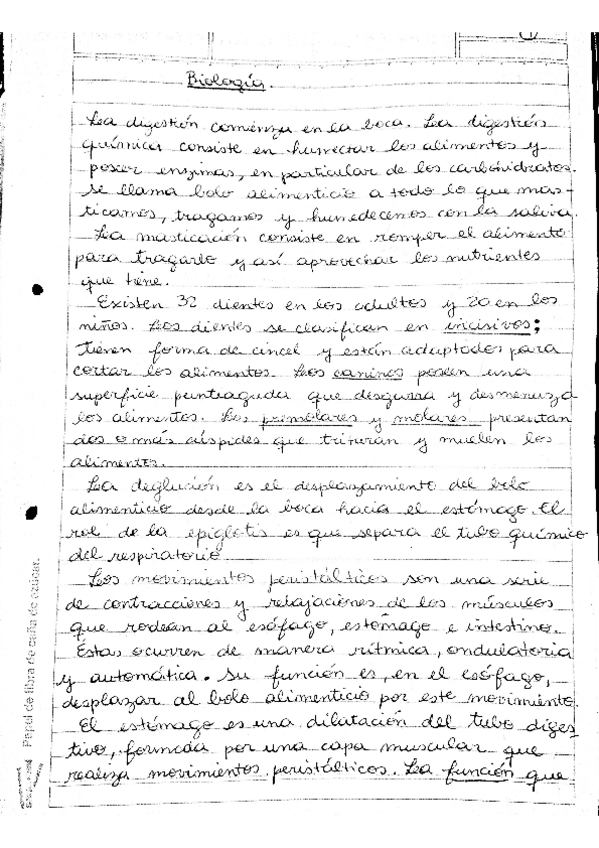 1
Biología.
La digestión comienza en la boca. La digestión
química consiste en humectar los alimentos y
poseer enzimas, en particular de los carbohidratos.
Se llama bolo alimenticio a todo lo que mas-
ticamos, tragamos y humedecenos con la saliva.
La masticación consiste en romper el alimento
para tragarlo y así aprovechar los nutrientes
que tiene.
Existen 32 dientes en los adultos y 20 en los
niños. Los dientes se clasifican en incisivos;
tienen forma de cincel y están adaptados para
cortar los alimentos. Los caninos poseen una
superficie puntiaguda que desgarra y desmenuza
los alimentos. Los premolares y molares presentan
dos o más cúspides que trituran y muelen los
alimentos.
La deglución es el desplazamiento del bolo
alimenticio desde la boca hacia el estómago. El
rol de la epiglotis es que separa el tubo químico
del respiratorio
Los movimientos peristálticos son una serie
de contracciones y relajaciones de los músculos
que rodean al esófago, estomago e intestino.
Estas ocurren de manera rítmica, ondulatoria
y automática. Su función es, en el esófago,
desplazar al bolo alimenticio por este movimiento.
El estómago es una dilatación del tubo diges-
tivo, formada por una capa muscular que
realiza movimientos peristálticos. La función que
Papel de fibra de caña de azúcar.